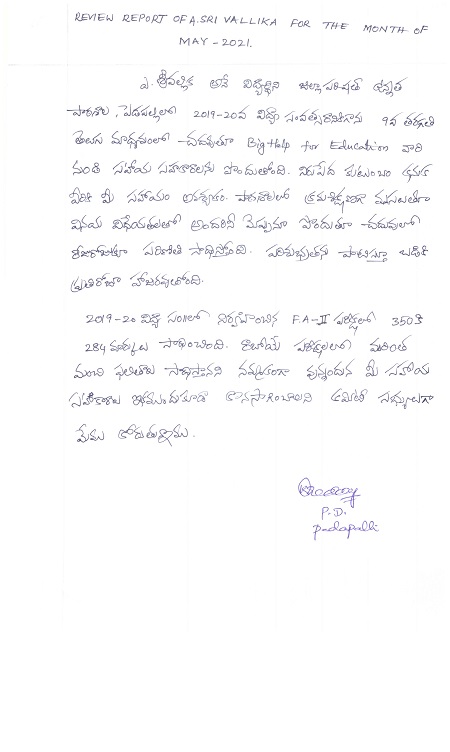 REVIEW REPORT OF A. SRI VALLIKA FOR THE MONTH OF
MAY - 2021.
ఎ. శ్రీవల్లిక అనే విద్యార్థిని జిల్లా పరిషత్ ఉన్నత
పాఠశాల, పెదపల్లిలో 2019-20వ విద్యా సంవత్సరానికిగాను 9వ తరగతి
తెలుగు మాధ్యమంలో చదువుతూ Big Help for Education వారి
నుండి సహాయ సహకారాలను పొందుతోంది. నిరుపేద కుటుంబం కనుక
వీరికి మీ సహాయం అవసరం. పాఠశాలలో క్రమశిక్షణగా మసలుతూ
వినయ విధేయతలతో అందరి మెప్పునూ పొందుతూ చదువులో
రోజురోజుకూ పరిణితి సాధిస్తోంది. పరిశుభ్రతను పాటిస్తూ బడికి
ప్రతిరోజూ హాజరవుతోంది.
2019-20 విద్యా సం॥లో నిర్వహించిన F.A-II పరీక్షలో 350కి
284 మార్కులు సాధించింది. రాబోయే పరీక్షలలో మరింత
మంచి ఫలితాలు సాధిస్తానని నమ్మకంగా వున్నందున మీ సహాయ
సహకారాలు ఇకముందుకూడా కొనసాగించాలని కమిటీ సభ్యులుగా
మేము కోరుతున్నాము.
P.D.
Pedapalli